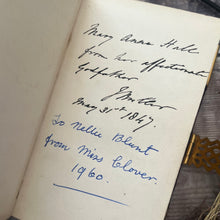 Mary Anna Hall
from her affectionate
Godfather
May 31st 1847.
To Nellie Blunt
from Miss Clover.
1960.